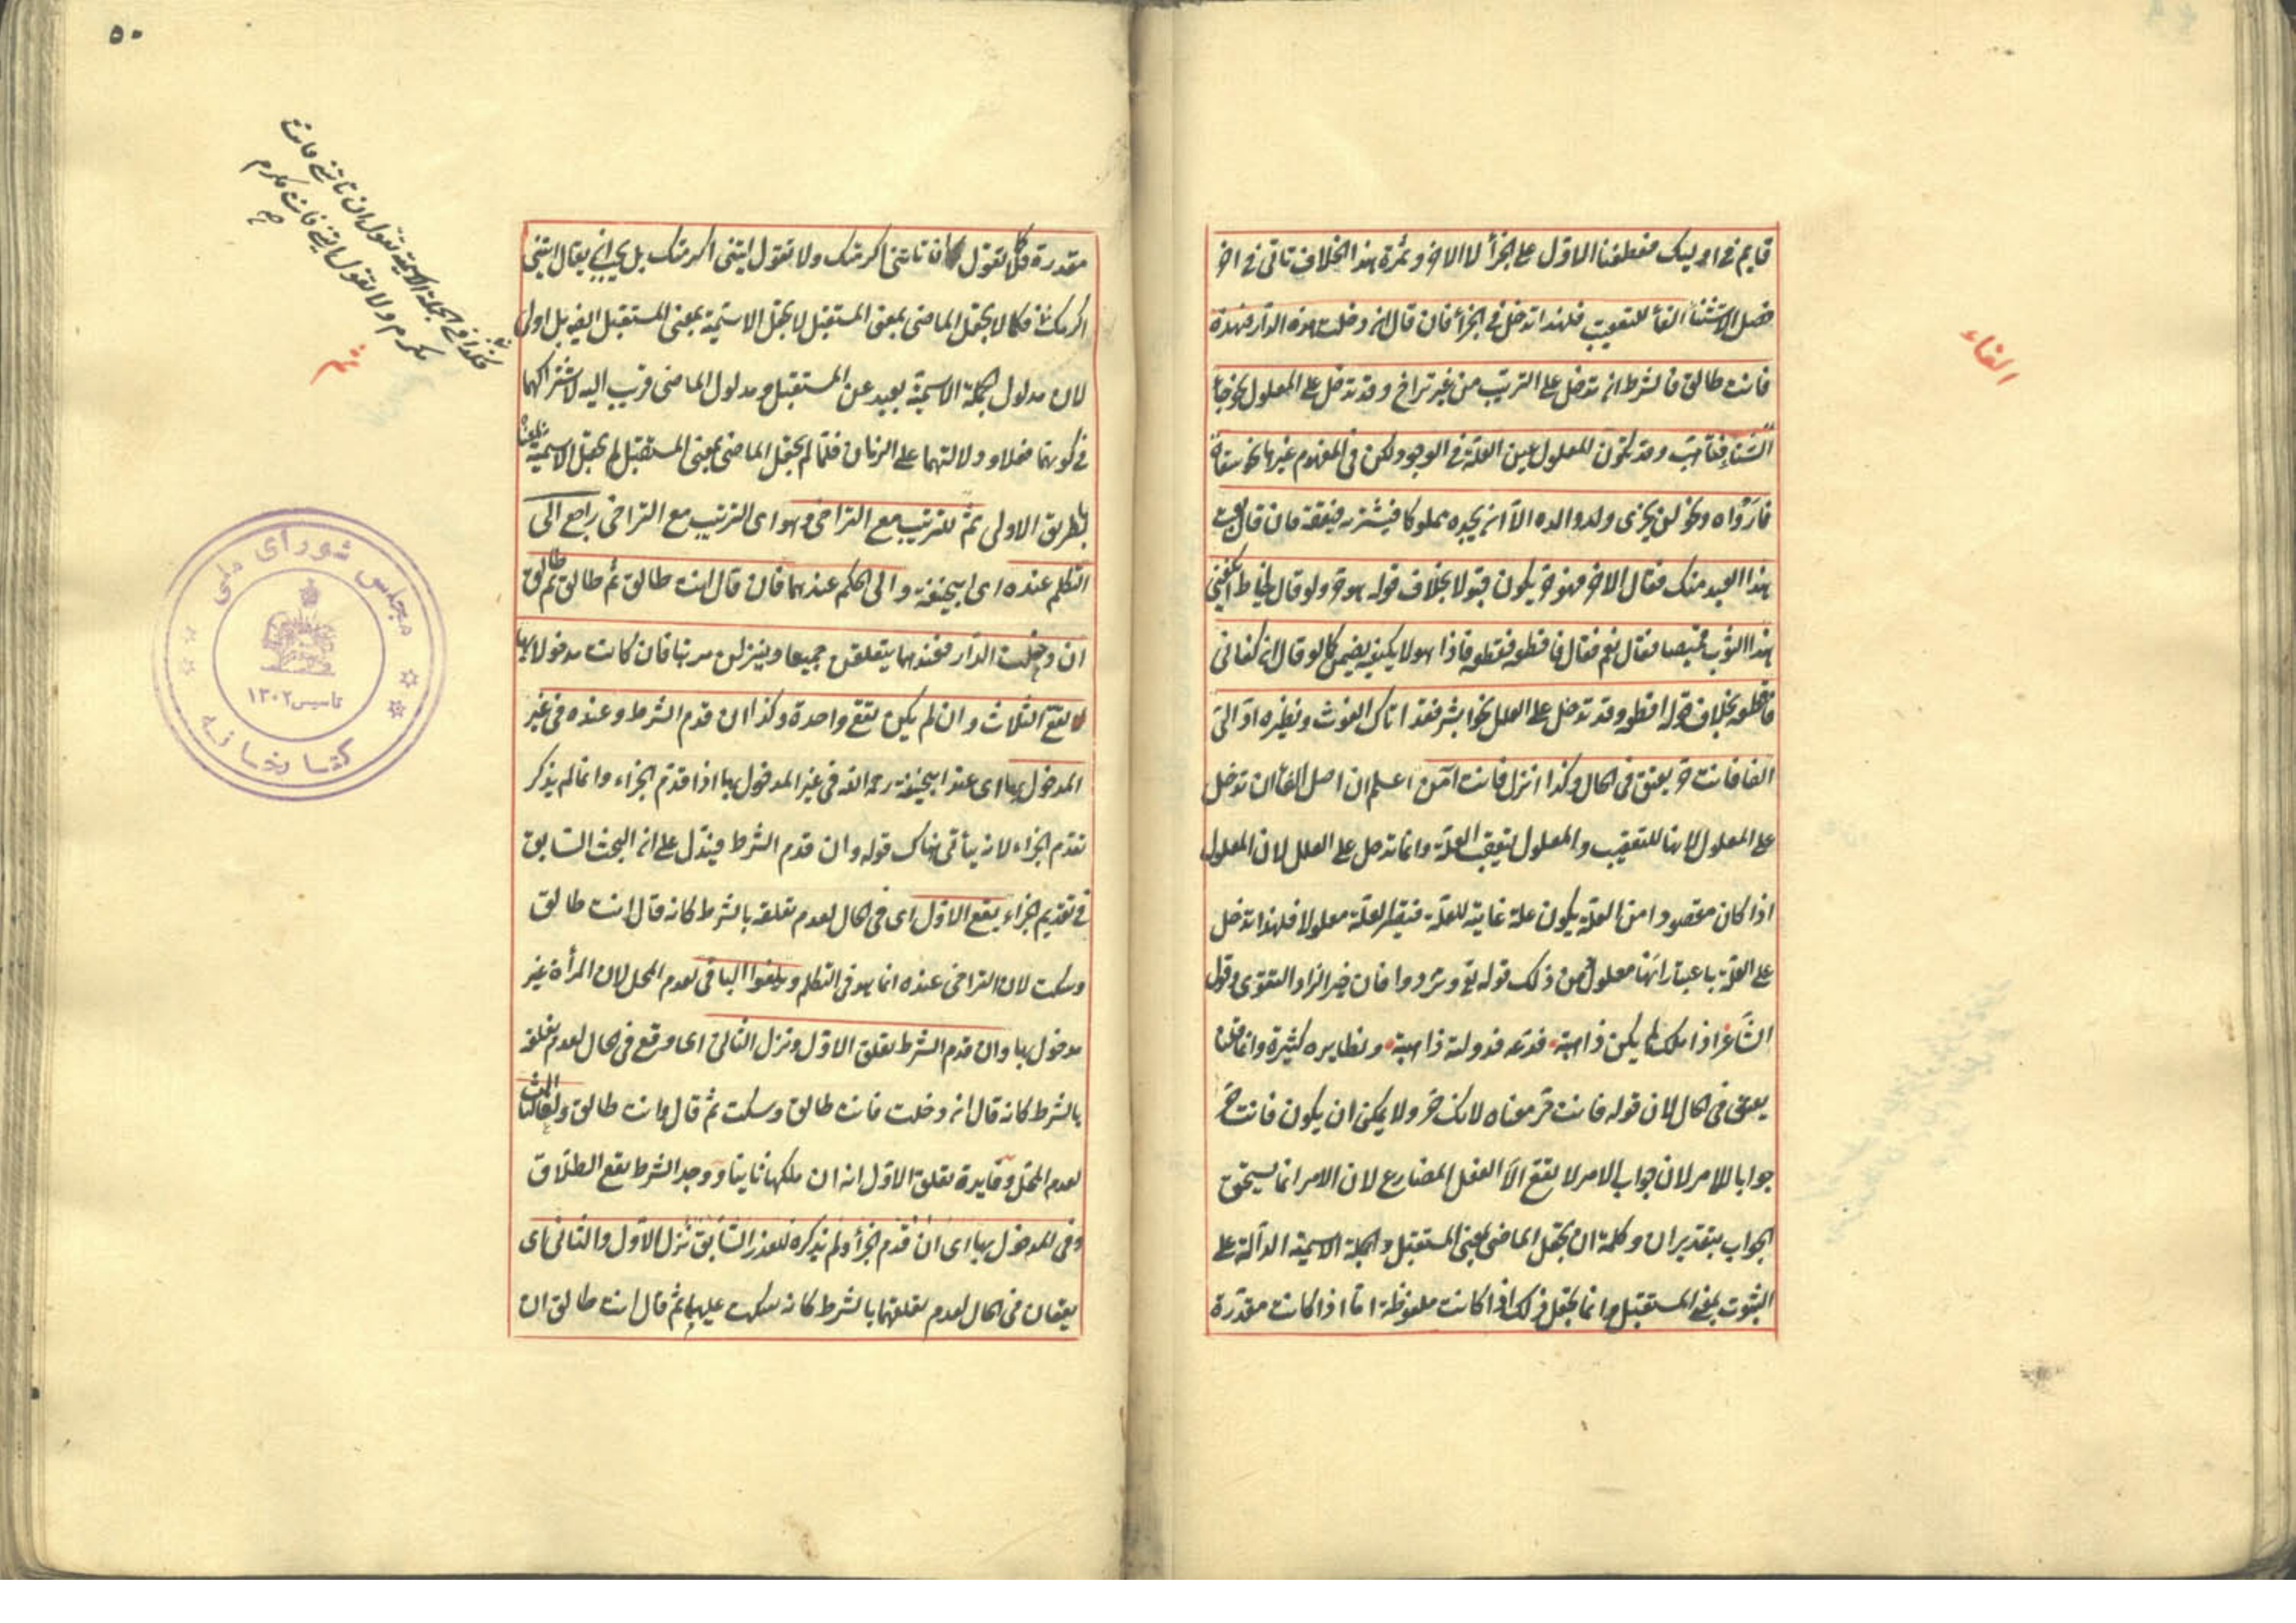 قايم في اوليك فعطفنا الاول على الجزأ لا الاخر وثمرة هذا الخلاف تاتي في اخر
فصل الاستثنا الفأ للتعقيب فلهذا تدخل في الجزأ فان قال ان دخلت هذه الدار فهذه
فانت طالق فالشرط ان تدخل على الترتيب من غير تراخ وقد تدخل على المعلول نحو جأ
الشتاء فتأهب وقد يكون المعلول عين العلة في الوجود لكن في المفهوم غيرها نحو سقاه
فارواه ونحو لن يجزى ولد والده الا ان يجده مملوكا فيشتريه فيعتقه فان قال بعت
هذا العبد منك فقال الاخر فهو حر يكون قبولا بخلاف قوله هو حر ولو قال لخياط ايكفيني
هذا الثوب قميصا فقال نعم فقال فاقطعه فقطعه فاذا هو لا يكفيه يضمن كما لو قال ان كفاني
فاقطعه بخلاف قوله اقطعه وقد تدخل على العلل نحو ابشر فقد اتاك الغوث ونظيره اد الى
الفا فانت حر يعتق في الحال وكذا انزل فانت آمن اعلم ان اصل الفأ ان تدخل
على المعلول لانها للتعقيب والمعلول يتعقب العلة وانما تدخل على العلل لان المعلول
اذا كان مقصودا من العلة يكون علة غاية للعلة فتيقلر العلة معلولا فلهذا تدخل
على العلة باعتبار انها معلول من ذلك قوله تع وتزودوا فان خير الزاد التقوى وقول
الشاعر اذا ملك لم يكن ذا هبة فدعه فدولته ذاهبة ونظايره كثيرة وانما قلنا
يعتق في الحال لان قوله فانت حر معناه لانك حر ولا يمكن ان يكون فانت حر
جوابا للامر لان جواب الامر لا يقع الا الفعل المضارع لان الامر انما يستحق
الجواب بتقدير ان وكلمة ان تجعل الماضى بمعنى المستقبل والجملة الاسمية الدالة على
الثبوت بمعنى المستقبل وانما تجعل ذلك اذا كانت ملفوظة اما اذا كانت مقدرة
الفاء
٥٠
مقدرة فلا كما تقول ان تاتني اكرمتك ولا تقول ايتنى اكرمتك بل يجب ان يقال ايتنى
اكرمك فكما لا تجعل الماضى بمعنى المستقبل لا تجعل الاسمية بمعنى المستقبل ايضا بل اولى
لان مدلول الجملة الاسمية بعيد عن المستقبل ومدلول الماضى قريب اليه لاشتراكهما
في كونهما فعلا ودلالتهما على الزمان فلما لم تجعل الماضى بمعنى المستقبل لم تجعل الاسمية بمعناه
بطريق الاولى ثم للترتيب مع التراخى وهو اى الترتيب مع التراخى راجع الى
التكلم عنده اى ابيحنيفة والى الحكم عندهما فان قال انت طالق ثم طالق ثم طالق
ان دخلت الدار فعندهما يتعلقن جميعا وينزلن مرتبا فان كانت مدخولا بها
يقع الثلاث وان لم يكن يقع واحدة وكذا ان قدم الشرط وعنده في غير
المدخول بها اى عند ابيحنيفة رحمه الله في غير المدخول بها اذا قدم الجزاء وانما لم يذكر
تقدم الجزاء لانه يأتى هناك قوله وان قدم الشرط فيدل على ان البحث السابق
في تقديم الجزاء يقع الاول اى في الحال لعدم تعلقه بالشرط كانه قال انت طالق
وسكت لان التراخى عنده انما هو في التكلم ويلغوا الباقى لعدم المحل لان المرأة غير
مدخول بها وان قدم الشرط تعلق الاول ونزل الثانى اى وقع في الحال لعدم تعلقه
بالشرط كانه قال ان دخلت فانت طالق وسكت ثم قال وانت طالق ولغا الثالث
لعدم المحل وفايدة تعلق الاول انه ان ملكها ثانيا ووجد الشرط يقع الطلاق
وفي المدخول بها اى ان قدم الجزأ ولم يذكره للعذر السابق نزل الاول والثانى اى
يقعان في الحال لعدم تعلقهما بالشرط كانه سكت عليهما ثم قال انت طالق ان
فكذا في الجملة الاسمية تقول ان تاتني فانت
مكرم ولا تقول ايتني فانت مكرم
صح
ثم
مجلس شوراى ملى
تاسيس ١٣٠٢
كتابخانه